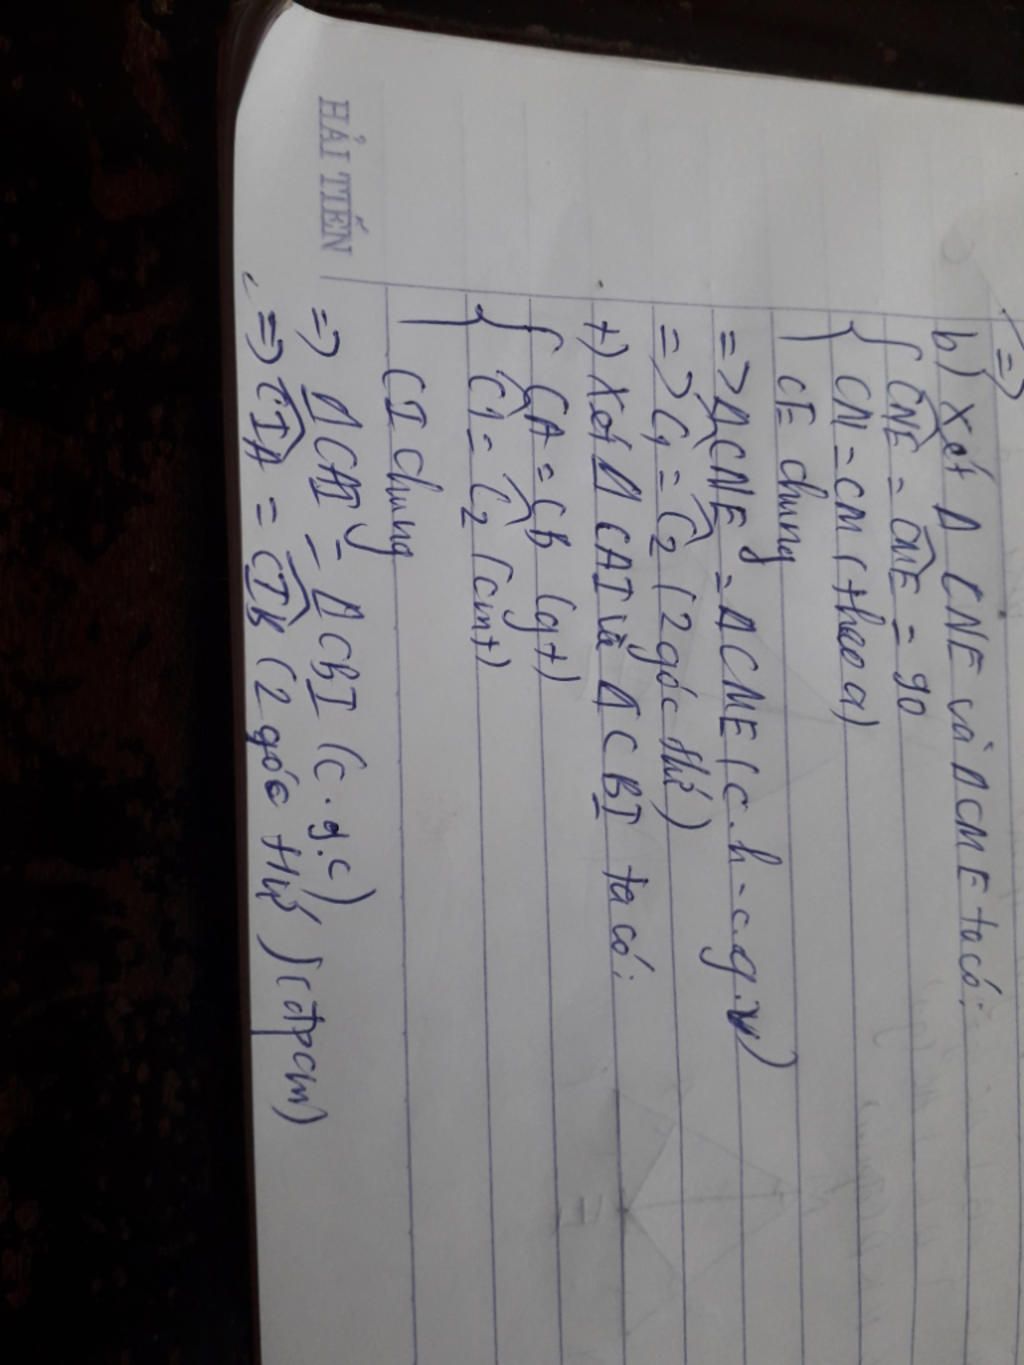 =>
b) Xét Δ CNE và ΔCME ta có:
CNE = CME = 90
CN = CM (theo a)
CE chung
=> ΔCNE = ΔCME (c.h - c.g.v)
=> C1 = C2 (2 góc tứ)
+) Xét Δ CAI và Δ CBI ta có:
CA = CB (gt)
C1 = C2 (cmt)
CI chung
=> ΔCAI = ΔCBI (c.g.c)
=> CIA = CIB (2 góc tứ) (đpcm)
HẢI TIẾN
E